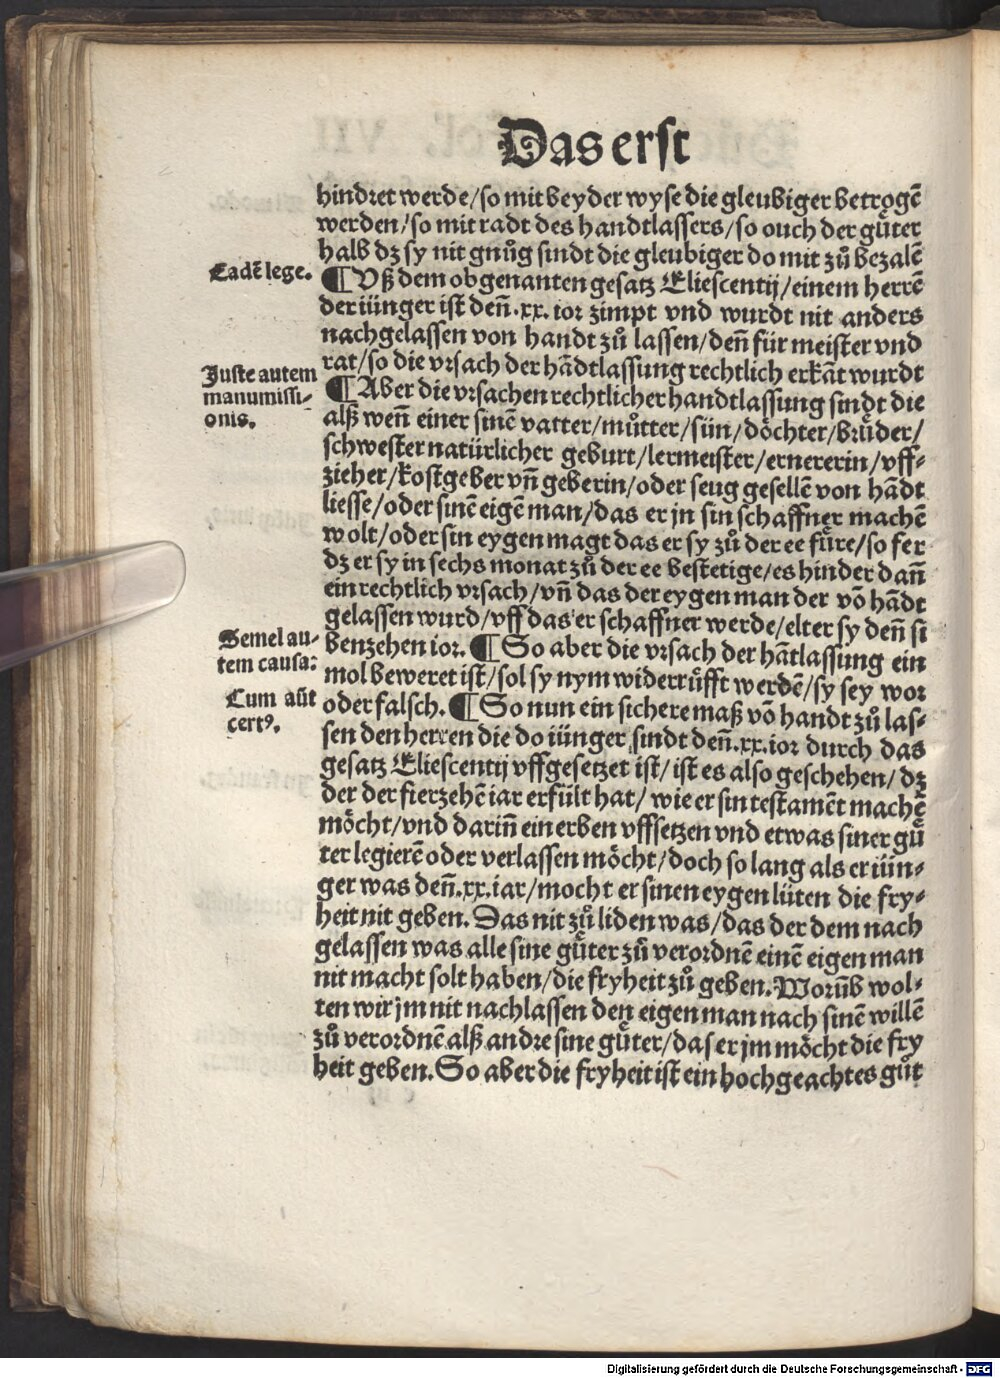 Das erst
hindret werde/so mit beyder wyse die gleubiger betrogē
werden/so mit radt des handtlassers/so ouch der gůter
halb dz sy nit gnůg sindt die gleubiger do mit zů bezalē
Eadē lege.
¶Vß dem obgenanten gesatz Eliescentij/einem herrē
der iünger ist den̄.xx. ior zimpt vnd wurdt nit anders
nachgelassen von handt zů lassen/den̄ für meister vnd
rat/so die vrsach der hādtlassung rechtlich erkāt wurdt
Juste autem
manumissi-
onis.
¶Aber die vrsachen rechtlicher handtlassung sindt die
alß wen̄ einer sinē vatter/můtter/sün/döchter/brüder/
schwester natürlicher geburt/lermeister/ernererin/vff-
zieher/kostgeber vn̄ geberin/oder seug gesellē von hādt
liesse/oder sinē eigē man/das er jn sin schaffner machē
wolt/oder sin eygen magt das er sy zů der ee fůre/so fer
dz er sy in sechs monat zů der ee bestetige/es hinder dan̄
ein rechtlich vrsach/vn̄ das der eygen man der vō hādt
gelassen wurd/vff das er schaffner werde/elter sy den̄ si
Semel au-
tem causa:
benzehen ior. ¶So aber die vrsach der hātlassung ein
mol beweret ist/sol sy nym widerrůfft werdē/sy sey wor
Cum aūt
certꝰ.
oder falsch. ¶So nun ein sichere maß vō handt zů las-
sen den herren die do iünger sindt den̄.xx.ior durch das
gesatz Eliescentij vffgesetzet ist/ist es also geschehen/dz
der der fierzehē iar erfült hat/wie er sin testamēt machē
möcht/vnd darin̄ ein erben vffsetzen vnd etwas siner gů
ter legierē oder verlassen möcht/doch so lang als er iün-
ger was den̄.xx.iar/mocht er sinen eygen lüten die fry-
heit nit geben. Das nit zů liden was/das der dem nach
gelassen was alle sine gůter zů verordnē einē eigen man
nit macht solt haben/die fryheit zů geben. Worūb wol-
ten wir jm nit nachlassen den eigen man nach sinē willē
zů verordnē alß andre sine gůter/das er jm möcht die fry
heit geben. So aber die fryheit ist ein hochgeachtes gůt
Digitalisierung gefördert durch die Deutsche Forschungsgemeinschaft - DFG